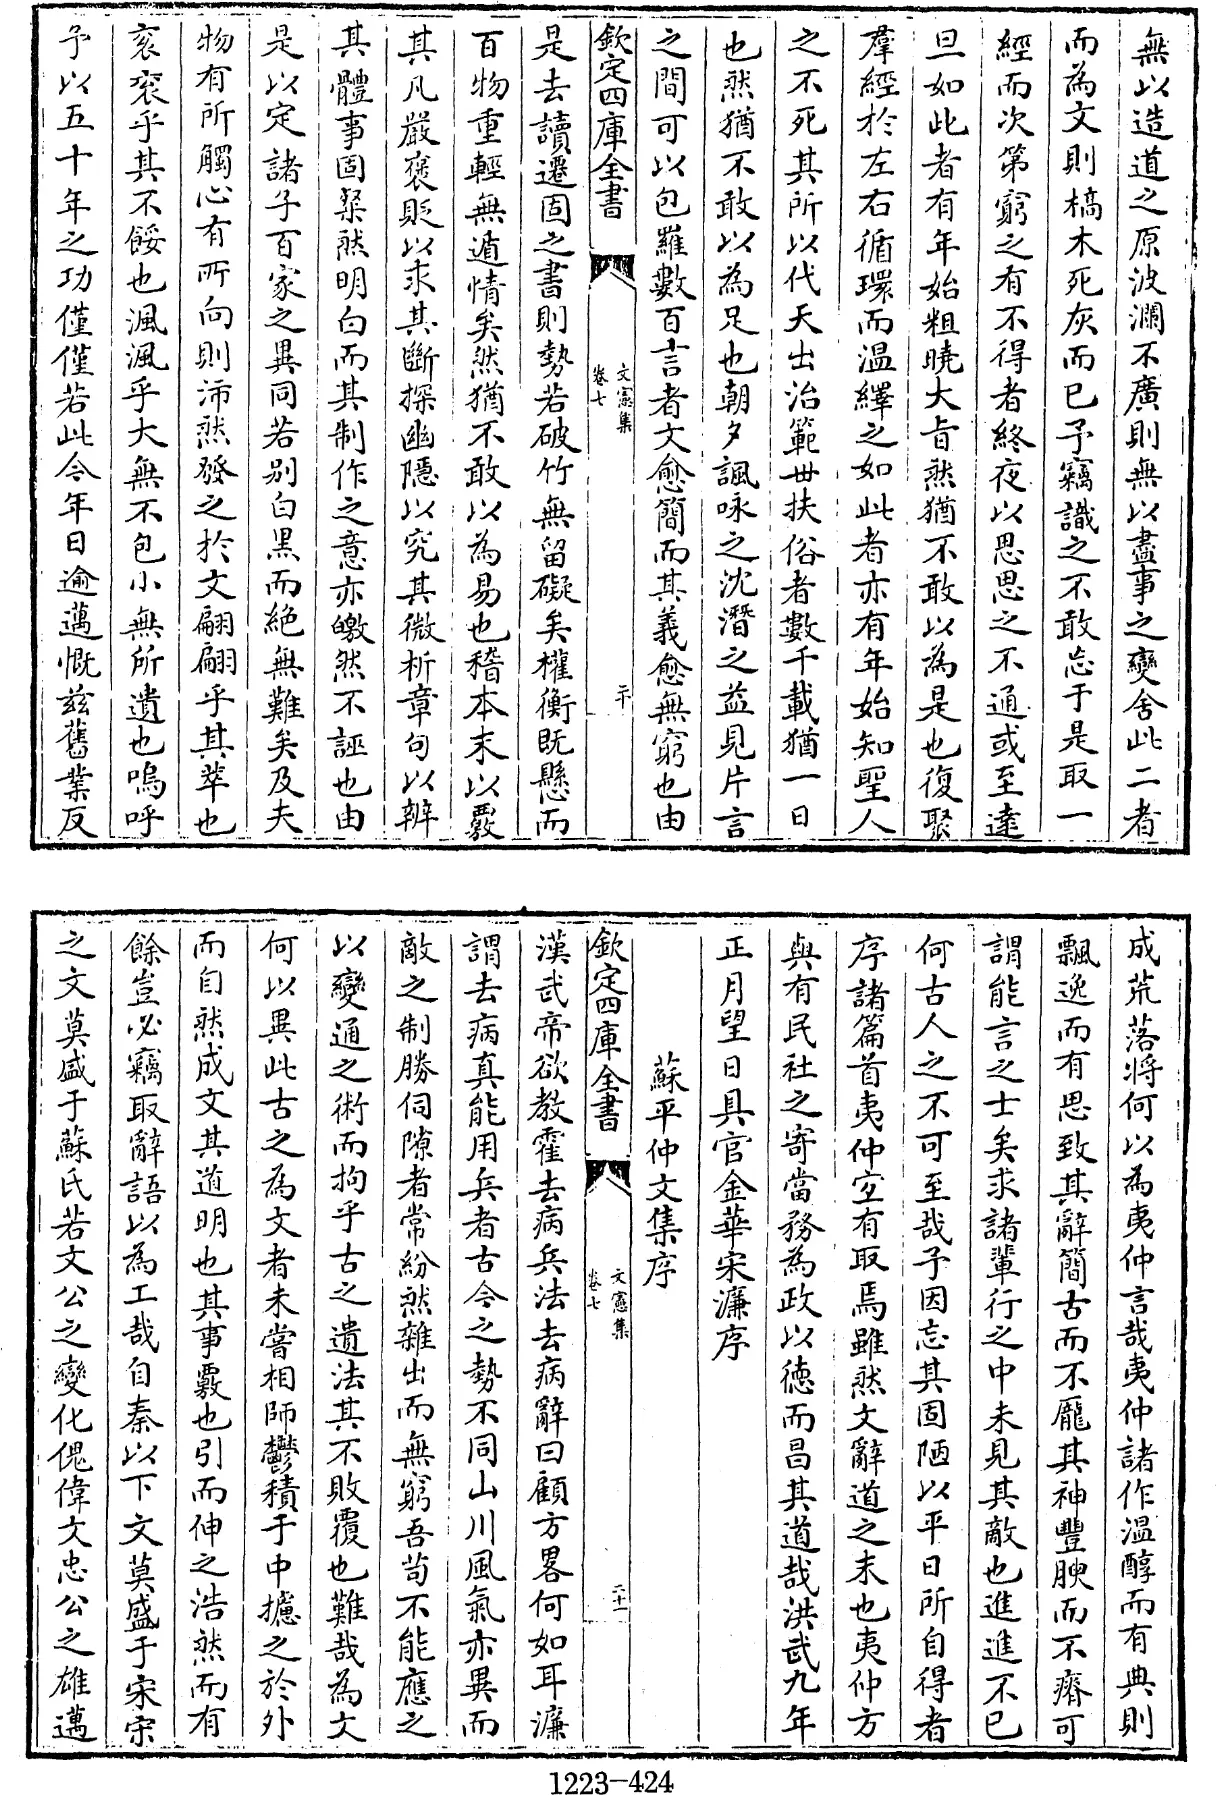 無以造道之原波瀾不廣則無以盡事之變舍此二者
而為文則槁木死灰而已予竊識之不敢忘于是取一
經而次第窮之有不得者終夜以思思之不通或至達
旦如此者有年始粗曉大旨然猶不敢以為是也復聚
羣經於左右循環而温繹之如此者亦有年始知聖人
之不死其所以代天出治範世扶俗者數千載猶一日
也然猶不敢以為足也朝夕諷咏之沈潛之益見片言
之間可以包羅數百言者文愈簡而其義愈無窮也由
欽定四庫全書
文憲集
卷七
二十
是去讀遷固之書則勢若破竹無留礙矣權衡既懸而
百物重輕無遁情矣然猶不敢以為易也稽本末以覈
其凡嚴褒貶以求其斷探幽隱以究其微析章句以辨
其體事固粲然明白而其制作之意亦皦然不誣也由
是以定諸子百家之異同若别白黑而絶無難矣及夫
物有所觸心有所向則沛然發之於文翩翩乎其萃也
衮衮乎其不餒也渢渢乎大無不包小無所遺也嗚呼
予以五十年之功僅僅若此今年日逾邁慨兹舊業反
成荒落將何以為夷仲言哉夷仲諸作温醇而有典則
飄逸而有思致其辭簡古而不龎其神豐腴而不瘠可
謂能言之士矣求諸輩行之中未見其敵也進進不已
何古人之不可至哉予因忘其固陋以平日所自得者
序諸篇首夷仲宜有取焉雖然文辭道之末也夷仲方
與有民社之寄當務為政以徳而昌其道哉洪武九年
正月望日具官金華宋濂序
蘇平仲文集序
欽定四庫全書
文憲集
卷七
二十一
漢武帝欲教霍去病兵法去病辭曰顧方畧何如耳濂
謂去病真能用兵者古今之勢不同山川風氣亦異而
敵之制勝伺隙者常紛然雜出而無窮吾苟不能應之
以變通之術而拘乎古之遺法其不敗覆也難哉為文
何以異此古之為文者未嘗相師鬱積于中攄之於外
而自然成文其道明也其事覈也引而伸之浩然而有
餘豈必竊取辭語以為工哉自秦以下文莫盛于宋宋
之文莫盛于蘇氏若文公之變化傀偉文忠公之雄邁
1223-424